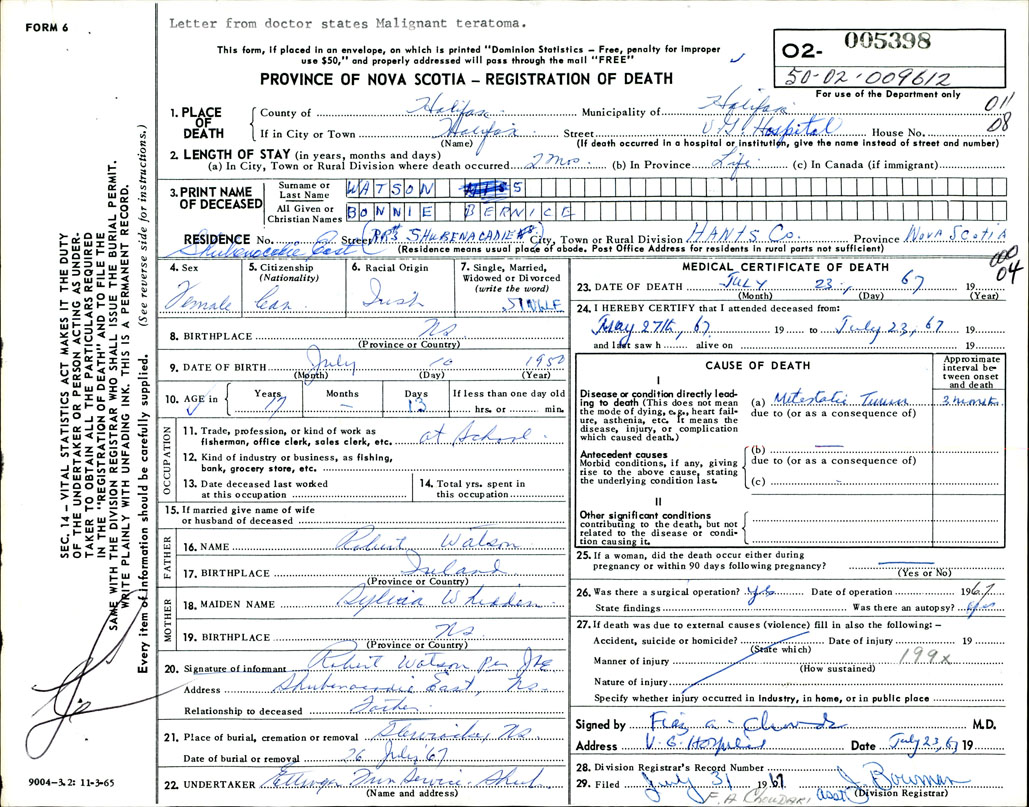 FORM 6
Letter from doctor states Malignant teratoma.
This form, if placed in an envelope, on which is printed "Dominion Statistics – Free, penalty for improper
use $50," and properly addressed will pass through the mail "FREE"
PROVINCE OF NOVA SCOTIA – REGISTRATION OF DEATH
O2- 005398
50-02-009612
For use of the Department only
011
08
1. PLACE OF DEATH
County of Halifax Municipality of Halifax
If in City or Town Halifax Street V.G. Hospital House No.
(Name) (If death occurred in a hospital or institution, give the name instead of street and number)
2. LENGTH OF STAY (in years, months and days)
(a) In City, Town or Rural Division where death occurred 2 mos. (b) In Province Life (c) In Canada (if immigrant)
3. PRINT NAME OF DECEASED
Surname or Last Name WATSON
All Given or Christian Names BONNIE BERNICE
RESIDENCE No. Street RR SHUBENACADIE City, Town or Rural Division HANTS Co. Province NOVA SCOTIA
Shubenacadie East (Residence means usual place of abode. Post Office Address for residents in rural parts not sufficient)
000
04
4. Sex
Female
5. Citizenship
(Nationality)
Can
6. Racial Origin
Irish
7. Single, Married,
Widowed or Divorced
(write the word)
SINGLE
8. BIRTHPLACE NS
(Province or Country)
9. DATE OF BIRTH July 10 1950
(Month) (Day) (Year)
10. AGE in Years Months Days If less than one day old
17 – 13 hrs. or min.
OCCUPATION
11. Trade, profession, or kind of work as
fisherman, office clerk, sales clerk, etc. at School
12. Kind of industry or business, as fishing,
bank, grocery store, etc.
13. Date deceased last worked
at this occupation
14. Total yrs. spent in
this occupation
15. If married give name of wife
or husband of deceased
FATHER
16. NAME Robert Watson
17. BIRTHPLACE Ireland
(Province or Country)
MOTHER
18. MAIDEN NAME Sylvia Whidden
19. BIRTHPLACE NS
(Province or Country)
20. Signature of informant Robert Watson per
Address Shubenacadie East, NS.
Relationship to deceased Father
21. Place of burial, cremation or removal NS
Date of burial or removal 26 July '67
22. UNDERTAKER Ettinger Fun Service Shub
(Name and address)
MEDICAL CERTIFICATE OF DEATH
23. DATE OF DEATH JULY 23, 67 19
(Month) (Day) (Year)
24. I HEREBY CERTIFY that I attended deceased from:
May 27th, 67 19 to July 23, 67 19
and last saw h alive on 19
CAUSE OF DEATH
Approximate
interval be-
tween onset
and death
I
Disease or condition directly lead-
ing to death (This does not mean
the mode of dying, e.g., heart fail-
ure, asthenia, etc. It means the
disease, injury, or complication
which caused death.)
(a) Metastatic Tumor 3 months
due to (or as a consequence of)
Antecedent causes
Morbid conditions, if any, giving
rise to the above cause, stating
the underlying condition last.
(b)
due to (or as a consequence of)
(c)
II
Other significant conditions
contributing to the death, but not
related to the disease or condi-
tion causing it.
25. If a woman, did the death occur either during
pregnancy or within 90 days following pregnancy?
(Yes or No)
26. Was there a surgical operation? yes Date of operation 1967
State findings Was there an autopsy? yes
27. If death was due to external causes (violence) fill in also the following: –
Accident, suicide or homicide? Date of injury 19
(State which)
Manner of injury 199x
(How sustained)
Nature of injury
Specify whether injury occurred in Industry, in home, or in public place
Signed by M.D.
Address V.G. Hospital Date July 23, 67 19
28. Division Registrar's Record Number
29. Filed July 31 1967 J. Bowman
F. A CHOUDARI asst (Division Registrar)
SEC. 14 – VITAL STATISTICS ACT MAKES IT THE DUTY
OF THE UNDERTAKER OR PERSON ACTING AS UNDER-
TAKER TO OBTAIN ALL THE PARTICULARS REQUIRED
IN THE "REGISTRATION OF DEATH" AND TO FILE THE
SAME WITH THE DIVISION REGISTRAR WHO SHALL ISSUE THE BURIAL PERMIT.
WRITE PLAINLY WITH UNFADING INK. THIS IS A PERMANENT RECORD.
Every item of information should be carefully supplied. (See reverse side for instructions.)
9004-3.2: 11-3-65